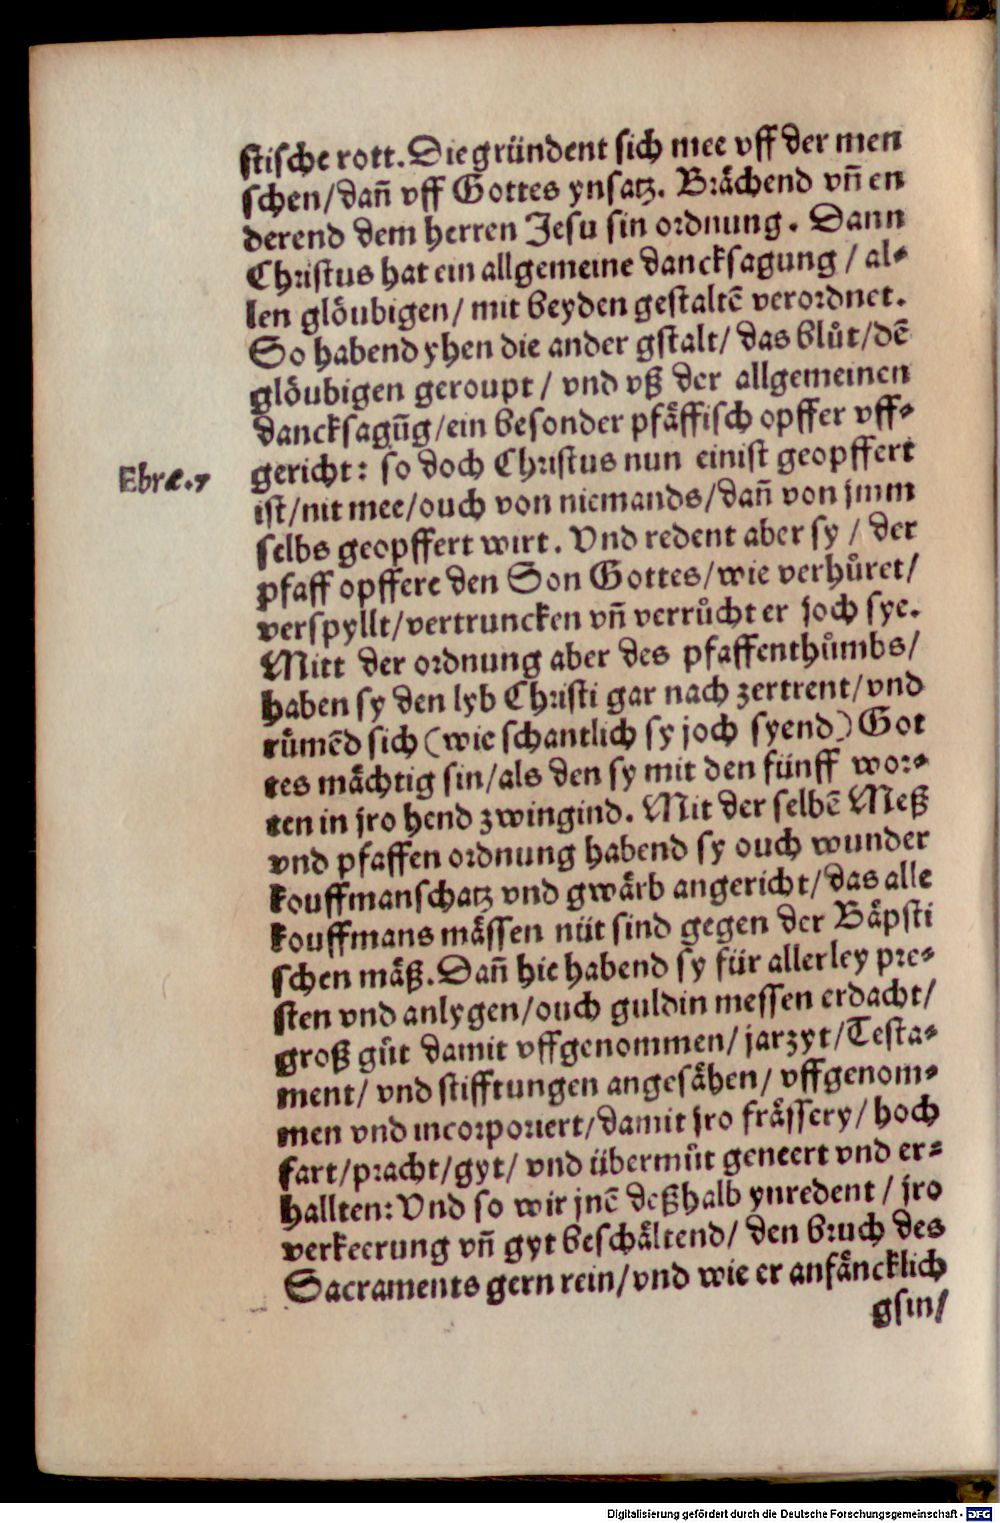 stische rott. Die gründent sich mee vff der men
schen/ dañ vff Gottes ynsatz. Brächend vñ en
derend dem herren Jesu sin ordnung. Dann
Christus hat ein allgemeine dancksagung / al⸗
len glöubigen/ mit beyden gestaltē verordnet.
So habend yhen die ander gstalt/ das blůt/ dē
glöubigen geroupt / vnd vß der allgemeinen
dancksagūg/ ein besonder pfäffisch opffer vff⸗
Ebræ.7
gericht: so doch Christus nun einist geopffert
ist/ nit mee/ ouch von niemands/ dañ von jmm
selbs geopffert wirt. Vnd redent aber sy / der
pfaff opffere den Son Gottes/ wie verhůret/
verspyllt/ vertruncken vñ verrůcht er joch sye.
Mitt der ordnung aber des pfaffenthůmbs/
haben sy den lyb Christi gar nach zertrent/ vnd
růmēd sich (wie schantlich sy joch syend) Got
tes mächtig sin/ als den sy mit den fünff wor⸗
ten in jro hend zwingind. Mit der selbē Meß
vnd pfaffen ordnung habend sy ouch wunder
kouffmanschatz vnd gwärb angericht/ das alle
kouffmans mässen nüt sind gegen der Bäpsti
schen mäß. Dañ hie habend sy für allerley pre⸗
sten vnd anlygen/ ouch guldin messen erdacht/
groß gůt damit vffgenommen/ jarzyt/ Testa⸗
ment/ vnd stifftungen angesähen/ vffgenom⸗
men vnd incorporiert/ damit jro frässery/ hoch
fart/ pracht/ gyt/ vnd übermůt geneert vnd er⸗
hallten: Vnd so wir jnē deßhalb ynredent / jro
verkeerung vñ gyt beschältend/ den bruch des
Sacraments gern rein/ vnd wie er anfäncklich
gsin/
Digitalisierung gefördert durch die Deutsche Forschungsgemeinschaft - DFG